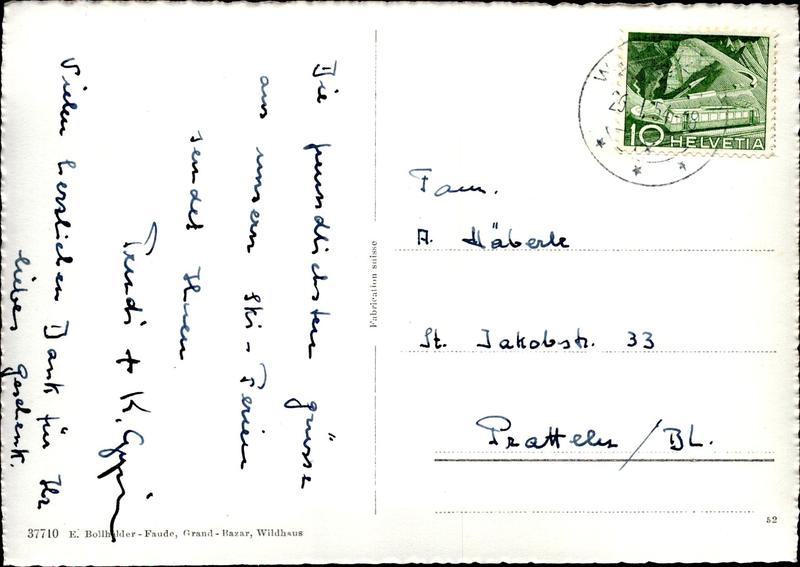 Die freundlichsten Grüsse
aus unsern Ski-Ferien
sendet Ihnen
Trudi + K.
Vielen herzlichen Dank für Ihr
liebes Geschenk.
Fabrication suisse
10 HELVETIA
Fam.
A. Häberle
St. Jakobstr. 33
Pratteln / BL.
52
37710 E. Bollhalder-Faude, Grand-Bazar, Wildhaus